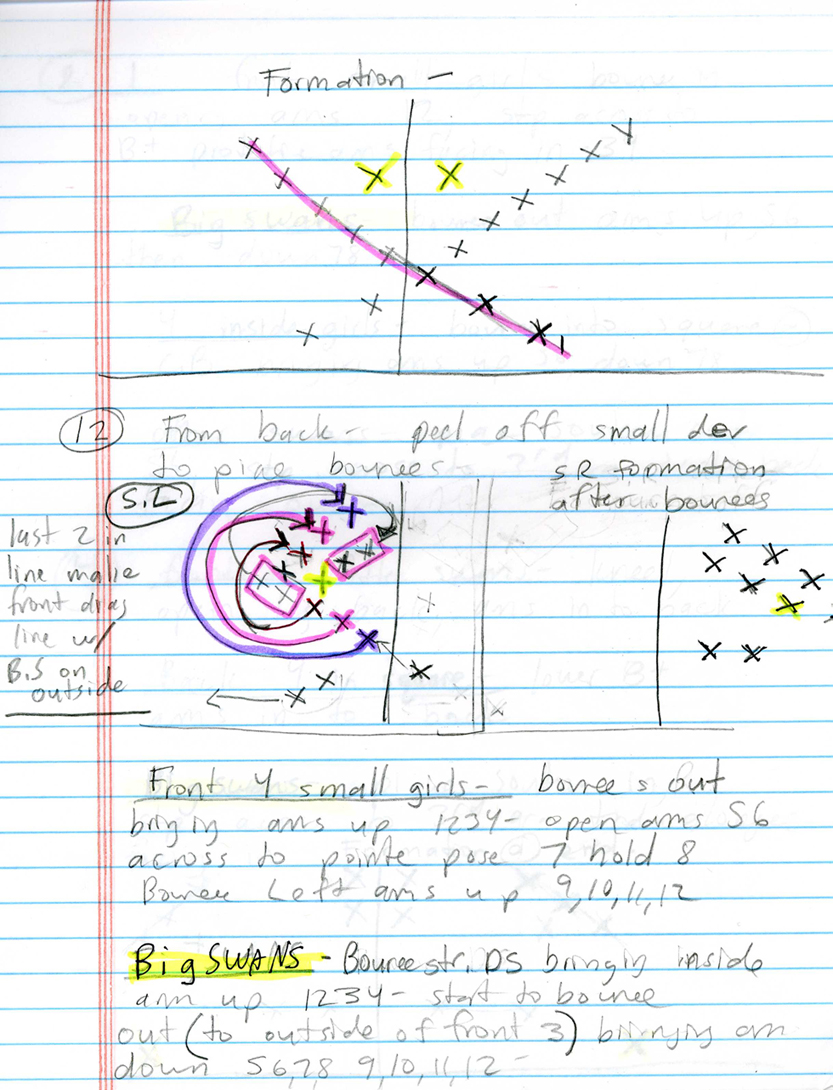 Formation -
12 From back - peel off small dev
to pique bourees
S.R formation
after bourees
S.L
last 2 in
line make
front diag
line w/
B.S on
outside
Front 4 small girls - bouree s out
bringing arms up 1234 - open arms 56
across to pointe pose 7 hold 8
Bouree Left arms up 9,10,11,12
Big SWANS - Bouree str. DS bringing inside
arm up 1234 - start to bouree
out (to outside of front 3) bringing arm
down 5678 9,10,11,12 -